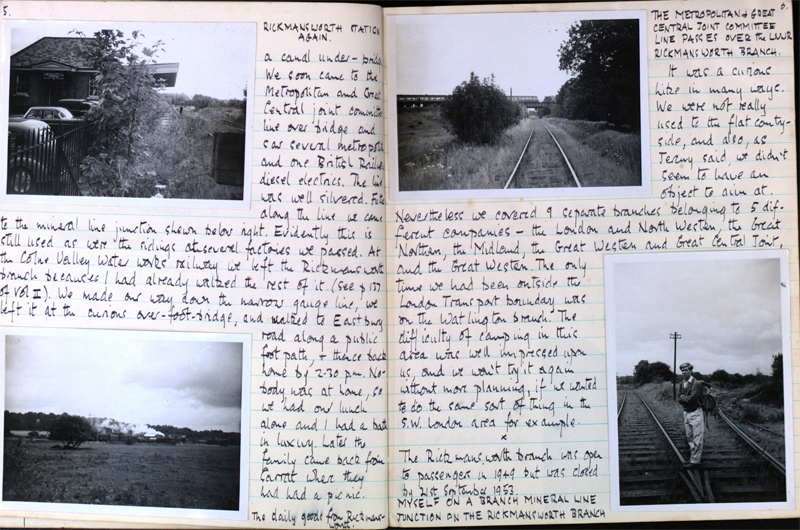 5.
RICKMANSWORTH STATION
AGAIN.
a canal under-bridge.
We soon came to the
Metropolitan and Great
Central joint committee
line over bridge and
saw several metropoli
and one British Railways
diesel electrics. The line
was well silvered.
along the line we came
to the mineral line junction shown below right. Evidently this is
still used as were the sidings at several factories we passed. At
the Colne Valley Water works railway we left the Rickmansworth
branch because I had already walked the rest of it. (see p 137
of Vol II). We made our way down the narrow gauge line, we
left it at the curious over-foot-bridge, and walked to Eastbury
road along a public
foot path, + thence back
home by 2.30 pm. No-
body was at home, so
we had our lunch
alone and I had a bath
in luxury. Later the
family came back from
Sarratt where they
had had a picnic.
The daily goods from Rickmans-
6.
THE METROPOLITAN + GREAT
CENTRAL JOINT COMMITTEE
LINE PASSES OVER THE LNWR
RICKMANSWORTH BRANCH.
It was a curious
hike in many ways.
We were not really
used to the flat county-
side, and also, as
Jerry said, we didn't
seem to have an
object to aim at.
Nevertheless we covered 9 separate branches belonging to 5 dif-
ferent companies - the London and North Western, the Great
Northern, the Midland, the Great Western and Great Central Joint,
and the Great Western. The only
time we had been outside the
London Transport boundary was
on the Watlington branch. The
difficulty of camping in this
area was well impressed upon
us, and we won't try it again
without more planning, if we wanted
to do the same sort of thing in the
S.W. London area for example.
x
The Rickmansworth branch was open
to passengers in 1949 but was closed
by 21st September 1953.
MYSELF ON A BRANCH MINERAL LINE
JUNCTION ON THE RICKMANSWORTH BRANCH